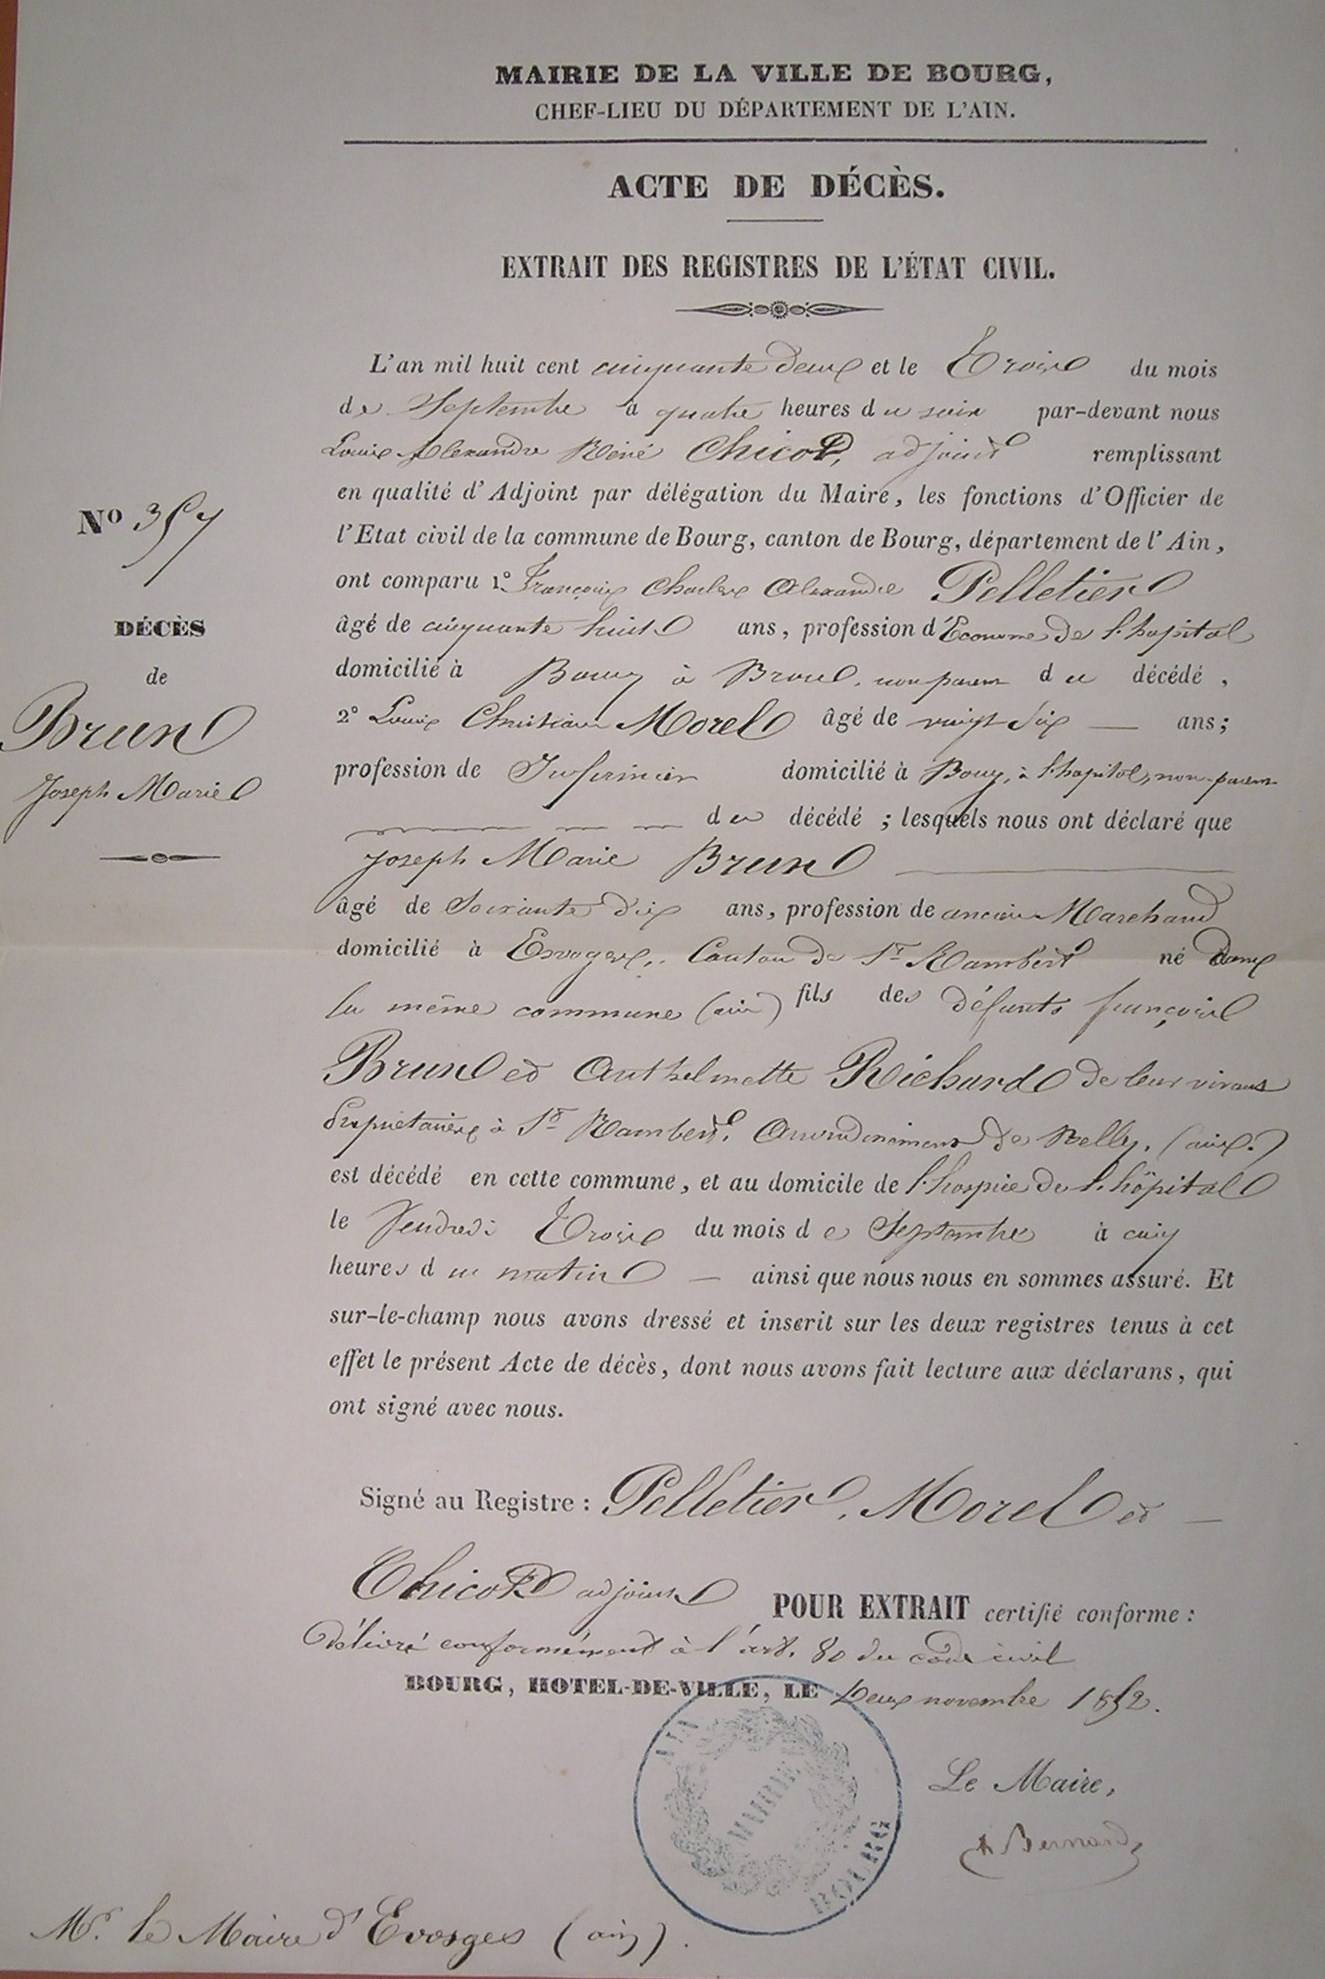 MAIRIE DE LA VILLE DE BOURG,
CHEF-LIEU DU DÉPARTEMENT DE L'AIN.
ACTE DE DÉCÈS.
EXTRAIT DES REGISTRES DE L'ÉTAT CIVIL.
L'an mil huit cent cinquante deux et le Trois du mois
de Septembre à quatre heures du soir par-devant nous
Louis Alexandre Réné Chicod, adjoint remplissant
en qualité d'Adjoint par délégation du Maire, les fonctions d'Officier de
l'Etat civil de la commune de Bourg, canton de Bourg, département de l'Ain,
ont comparu 1º François Charles Alexandre Pelletier
âgé de cinquante huit ans, profession d'Econome de l'hopital
domicilié à Bourg à Brou, non parent du décédé,
2º Louis Christian Morel âgé de vingt six — ans;
profession de Infirmier domicilié à Bourg, à l'hopital, non-parent
du décédé ; lesquels nous ont déclaré que
Joseph Marie Brun
âgé de Soixante dix ans, profession de ancien Marchand
domicilié à Evosges, Canton de St Rambert né dans
la même commune (ain) fils des défunts françois
Brun et Anthelmette Richard de leur vivant
Propriétaires à St Rambert, Arrondissement de Belley, (ain.)
est décédé en cette commune, et au domicile de l'hospice de l'hôpital
le Vendredi Trois du mois de Septembre à cinq
heures du matin — ainsi que nous nous en sommes assuré. Et
sur-le-champ nous avons dressé et inscrit sur les deux registres tenus à cet
effet le présent Acte de décès, dont nous avons fait lecture aux déclarans, qui
ont signé avec nous.
Nº 357
DÉCÈS
de
Brun
Joseph Marie
Signé au Registre : Pelletier, Morel et —
Chicod adjoint POUR EXTRAIT certifié conforme :
Délivré conformément à l'art. 80 du code civil
BOURG, HOTEL-DE-VILLE, LE Deux novembre 1852.
AIN
MAIRIE
BOURG
Le Maire,
Bernard
Mr. le Maire d'Evosges (ain).